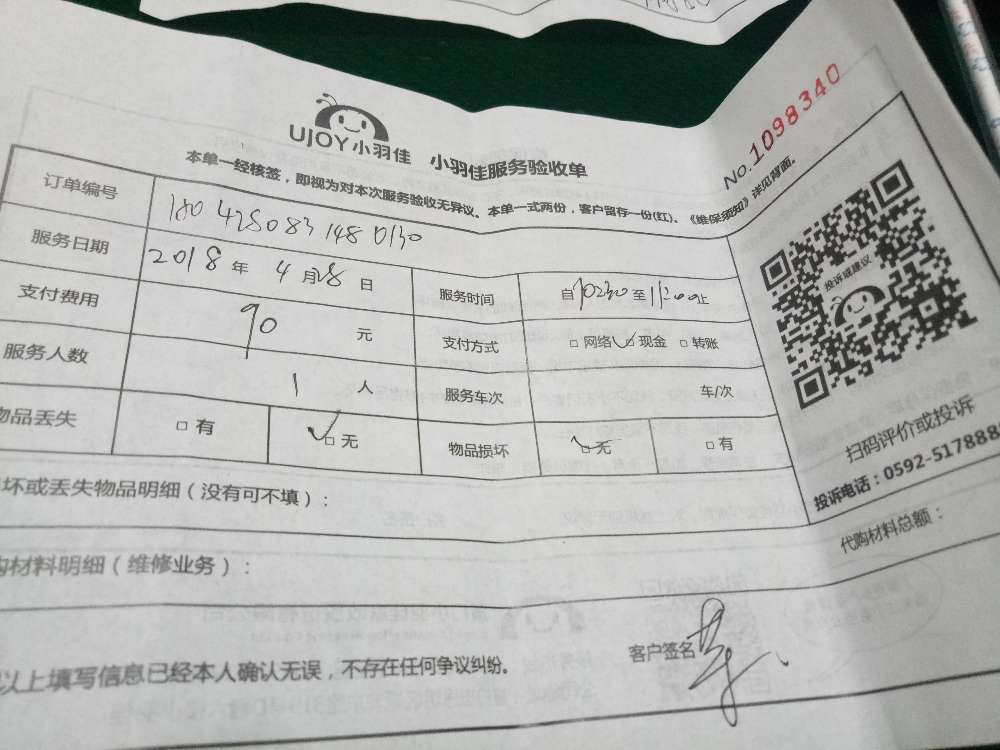 UJOY小羽佳 小羽佳服务验收单
No.1098340
本单一经核签，即视为对本次服务验收无异议。本单一式两份，客户留存一份(红)、《维保须知》详见背面。
订单编号
服务日期 2018年4月 日 服务时间 自 至 止
支付费用 90 元 支付方式 □网络 □现金 □转账
服务人数 1 人 服务车次 车/次
物品丢失 □有 □无 物品损坏 □无 □有
投诉或建议
扫码评价或投诉
投诉电话：0592-517888
坏或丢失物品明细（没有可不填）：
购材料明细（维修业务）： 代购材料总额：
以上填写信息已经本人确认无误，不存在任何争议纠纷。 客户签名